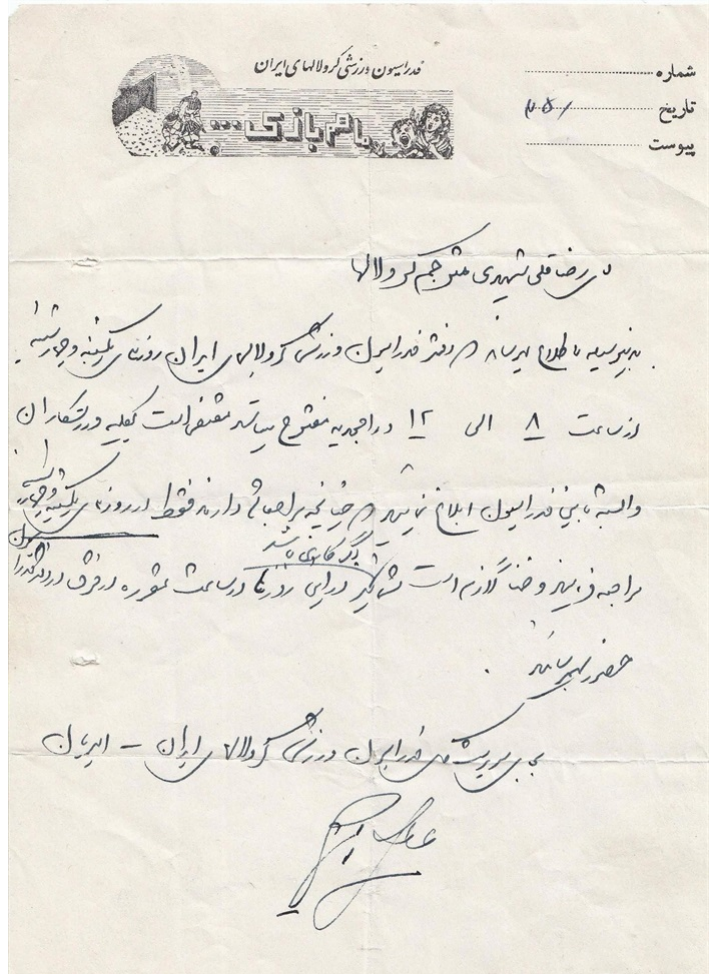 فدراسیون ورزشی کرولالهای ایران
شماره
تاریخ
پیوست
با هم بازی ...
رضا قلی شهیدی مترجم کرولالها
بدینوسیله باطلاع میرساند دفتر فدراسیون ورزشی کرولالهای ایران روزهای یکشنبه و چهارشنبه
از ساعت ۸ الی ۱۲ در امجدیه مفتوح میباشد مقتضی است بکلیه ورزشکاران
وابسته باین فدراسیون ابلاغ نمائید چنانچه مراجعاتی دارند فقط در روزهای یکشنبه و چهارشنبه
مراجعه فرمایند و ضمناً لازم است شما نیز در این روزها در ساعت مقرره در دفتر فدراسیون
حضور بهم رسانید .
بجای سرپرست فدراسیون ورزشی کرولالهای ایران –